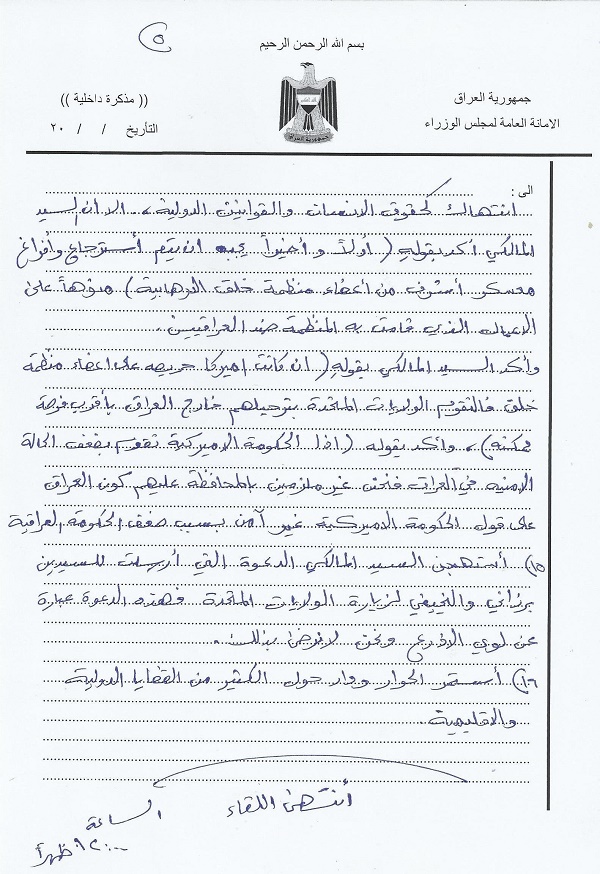 ٥
بسم الله الرحمن الرحيم
جمهورية العراق
(( مذكرة داخلية ))
الامانة العامة لمجلس الوزراء
التأريخ / / ٢٠
جمهورية العراق
الى :
انتهاك لحقوق الانسان والقوانين الدولية ، الا ان السيد
المالكي أكد بقوله ( أولاً و أخيراً يجب ان يتم أسترجاع وأفراغ
معسكر أشرف من أعضاء منظمة خلق الارهابية ) منوهاً على
الاعمال التي قامت به المنظمة ضد العراقيين .
وأكد السيد المالكي بقوله ( ان كانت اميركا حريصه على اعضاء منظمة
خلق فالتقوم الولايات المتحدة بترحيلهم خارج العراق بأقرب فرصة
ممكنة ) ، وأكد بقوله ( اذا الحكومة الاميركية تقوم بضعف الحالة
الامنيه في العراق فنحن غير ملزمين بالمحافظة عليهم كون العراق
على قول الحكومة الاميركية غير آمن بسبب ضعف الحكومة العراقية
١٥) أستهجن السيد المالكي الدعوة التي أرسلت للسيدين
برزاني والنجيفي لزيارة الولايات المتحدة فهذه الدعوة عبارة
عن لوي الاذرع ونحن لا نرضى بذلك .
١٦) أستمر الحوار ودار حول الكثير من القضايا الدولية
والاقليمية .
أنتهى اللقاء
الساعة
١٢:٠٠ ظهراً